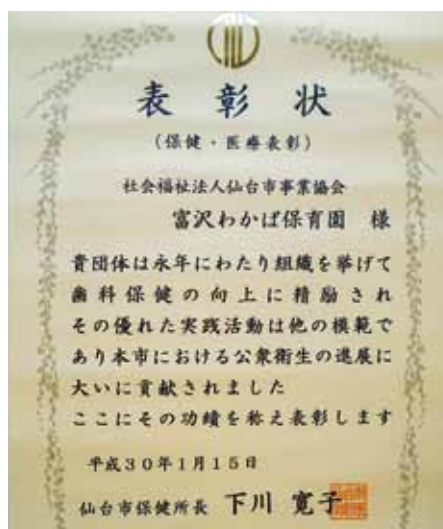 表彰状
（保健・医療表彰）
社会福祉法人仙台市事業協会
富沢わかば保育園 様
貴団体は永年にわたり組織を挙げて
歯科保健の向上に精励され
その優れた実践活動は他の模範で
あり本市における公衆衛生の進展に
大いに貢献されました
ここにその功績を称え表彰します
平成30年1月15日
仙台市保健所長 下川 寛子